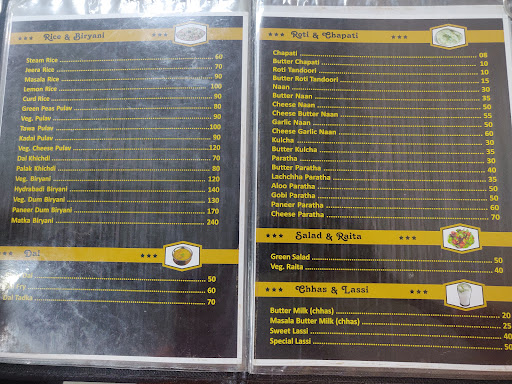 Rice & Biryani
Steam Rice 60
Jeera Rice 70
Masala Rice 90
Lemon Rice 100
Curd Rice
Green Peas Pulav
Veg. Pulav 90
Tawa Pulav 100
Kadai Pulav 90
Veg. Cheese Pulav 120
Dal Khichdi 70
Palak Khichdi 80
Veg. Biryani 120
Hydrobadi Biryani 140
Veg. Dum Biryani 130
Paneer Dum Biryani 170
Matka Biryani 240
Dal
50
60
Dal Tadka 70
Roti & Chapati
Chapati 08
Butter Chapati 10
Roti Tandoori 10
Butter Roti Tandoori 15
Naan 30
Butter Naan 35
Cheese Naan 50
Cheese Butter Naan 55
Garlic Naan 50
Cheese Garlic Naan 60
Kulcha 30
Butter Kulcha 35
Paratha 30
Butter Paratha 40
Lachchha Paratha 35
Aloo Paratha 50
Gobi Paratha 50
Paneer Paratha 60
Cheese Paratha 70
Salad & Raita
Green Salad 50
Veg. Raita 40
Chhas & Lassi
Butter Milk (chhas) 20
Masala Butter Milk (chhas) 25
Sweet Lassi 40
Special Lassi 50